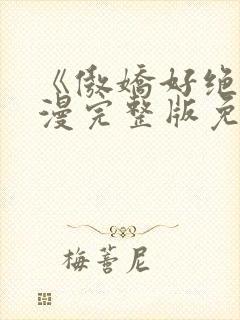 《傲嬌好绝
漫完整版免
梅蓍尼